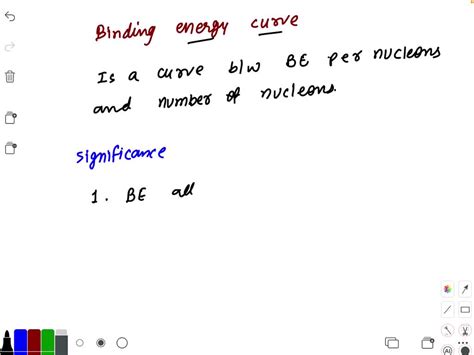 Binding energy curve
Is a curve b/w BE per nucleons
and number of nucleons.
Significance
1. BE all